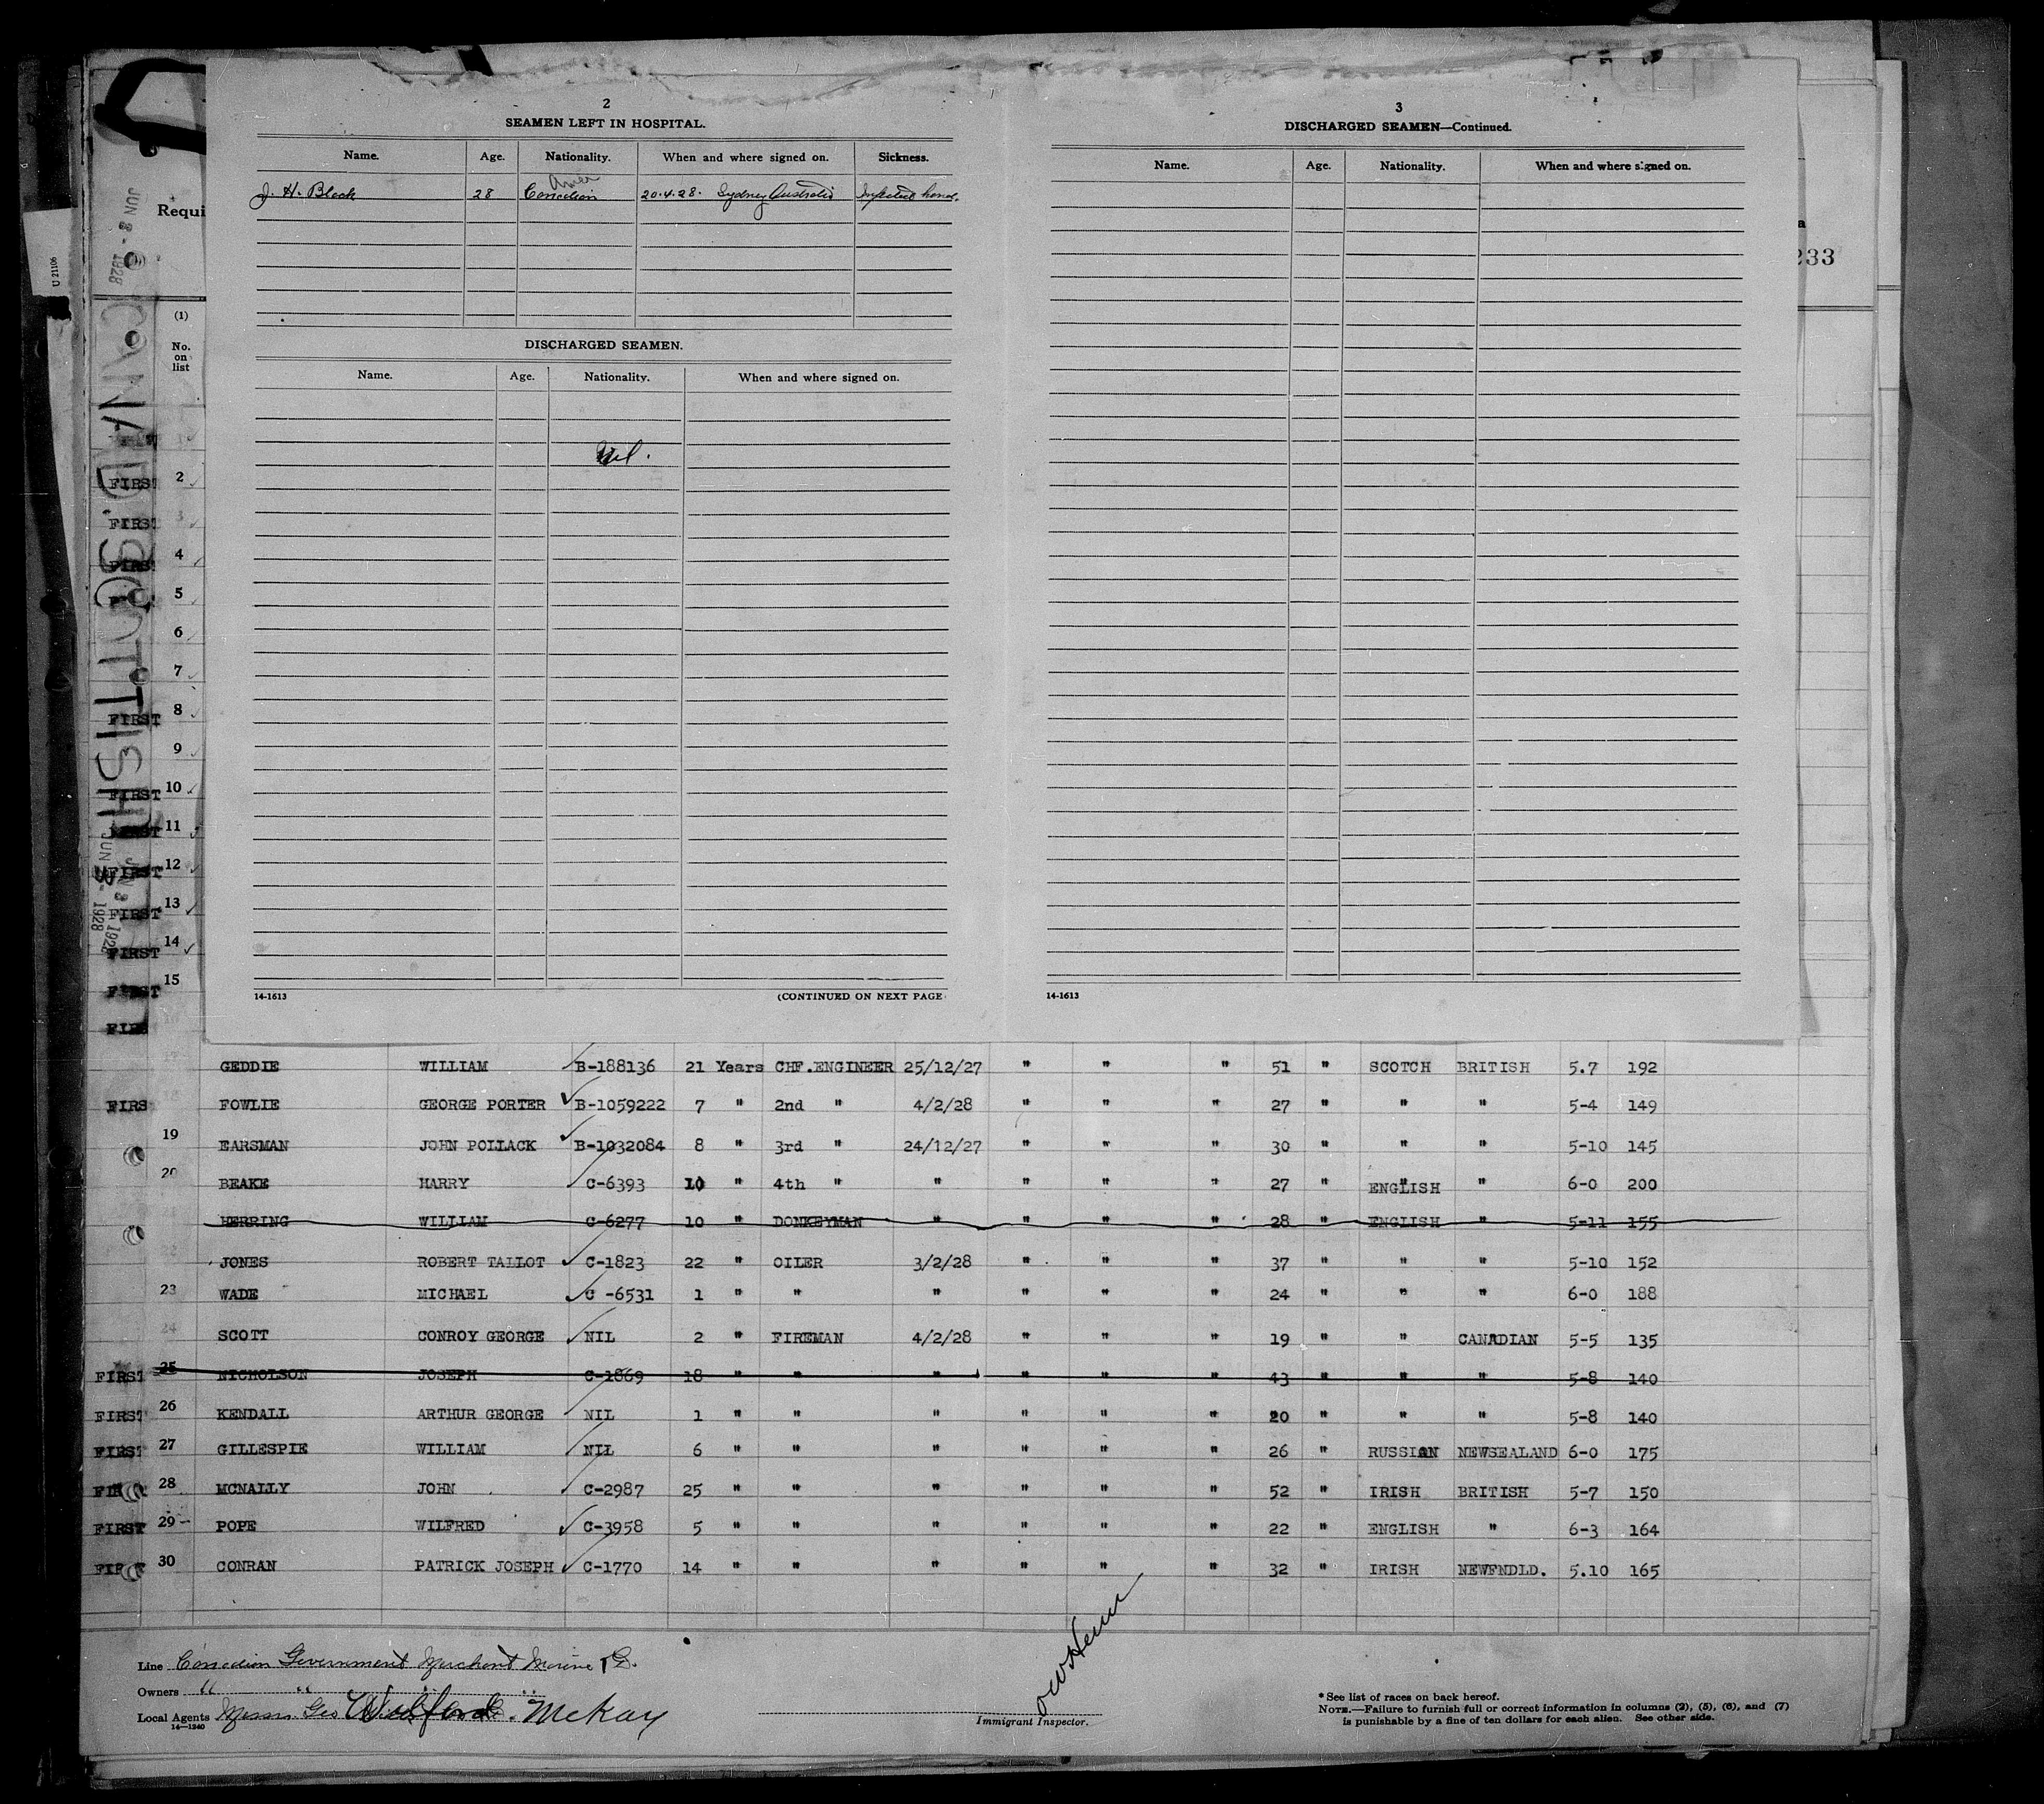 2
SEAMEN LEFT IN HOSPITAL.
Name. Age. Nationality. When and where signed on. Sickness.
J. H. Black 28 Canadian 20.4.28. Sydney Australia Infected hand.
DISCHARGED SEAMEN.
Name. Age. Nationality. When and where signed on.
Nil.
14-1613 (CONTINUED ON NEXT PAGE
3
DISCHARGED SEAMEN—Continued.
Name. Age. Nationality. When and where signed on.
14-1613
233
U 21106
JUN 8 - 1928
CANAD. SCOTTISH
JUN 8 - 1928
JUN 8 - 1928
Requi
(1)
No.
on
list
FIRST 2
FIRST 3
FIRST 4
5
6
7
FIRST 8
9
FIRST 10
FIRST 11
FIRST 12
FIRST 13
FIRST 14
FIRST 15
FIRS
GEDDIE WILLIAM B-188136 21 Years CHF.ENGINEER 25/12/27 " " " 51 " SCOTCH BRITISH 5.7 192
FIRS FOWLIE GEORGE PORTER B-1059222 7 " 2nd " 4/2/28 " " " 27 " " " 5-4 149
19 EARSMAN JOHN POLLACK B-1032084 8 " 3rd " 24/12/27 " " " 30 " " " 5-10 145
20 BEAKE HARRY C-6393 10 " 4th " " " " " 27 " ENGLISH " 6-0 200
HERRING WILLIAM C-6277 10 " DONKEYMAN " " " " 28 " ENGLISH " 5-11 155
22 JONES ROBERT TALLOT C-1823 22 " OILER 3/2/28 " " " 37 " " " 5-10 152
23 WADE MICHAEL C-6531 1 " " " " " " 24 " " " 6-0 188
24 SCOTT CONROY GEORGE NIL 2 " FIREMAN 4/2/28 " " " 19 " " CANADIAN 5-5 135
FIRST 25 NICHOLSON JOSEPH C-1869 18 " " " " " " 43 " " " 5-8 140
FIRST 26 KENDALL ARTHUR GEORGE NIL 1 " " " " " " 20 " " " 5-8 140
FIRST 27 GILLESPIE WILLIAM NIL 6 " " " " " " 26 " RUSSIAN NEWSEALAND 6-0 175
28 MCNALLY JOHN C-2987 25 " " " " " " 52 " IRISH BRITISH 5-7 150
FIRST 29 POPE WILFRED C-3958 5 " " " " " " 22 " ENGLISH " 6-3 164
30 CONRAN PATRICK JOSEPH C-1770 14 " " " " " " 32 " IRISH NEWFNDLD. 5.10 165
Line Canadian Government Merchant Marine Ltd.
Owners " " "
Local Agents Messrs Geo McKay
14—1240
Immigrant Inspector.
* See list of races on back hereof.
NOTE.—Failure to furnish full or correct information in columns (2), (5), (6), and (7)
is punishable by a fine of ten dollars for each alien. See other side.